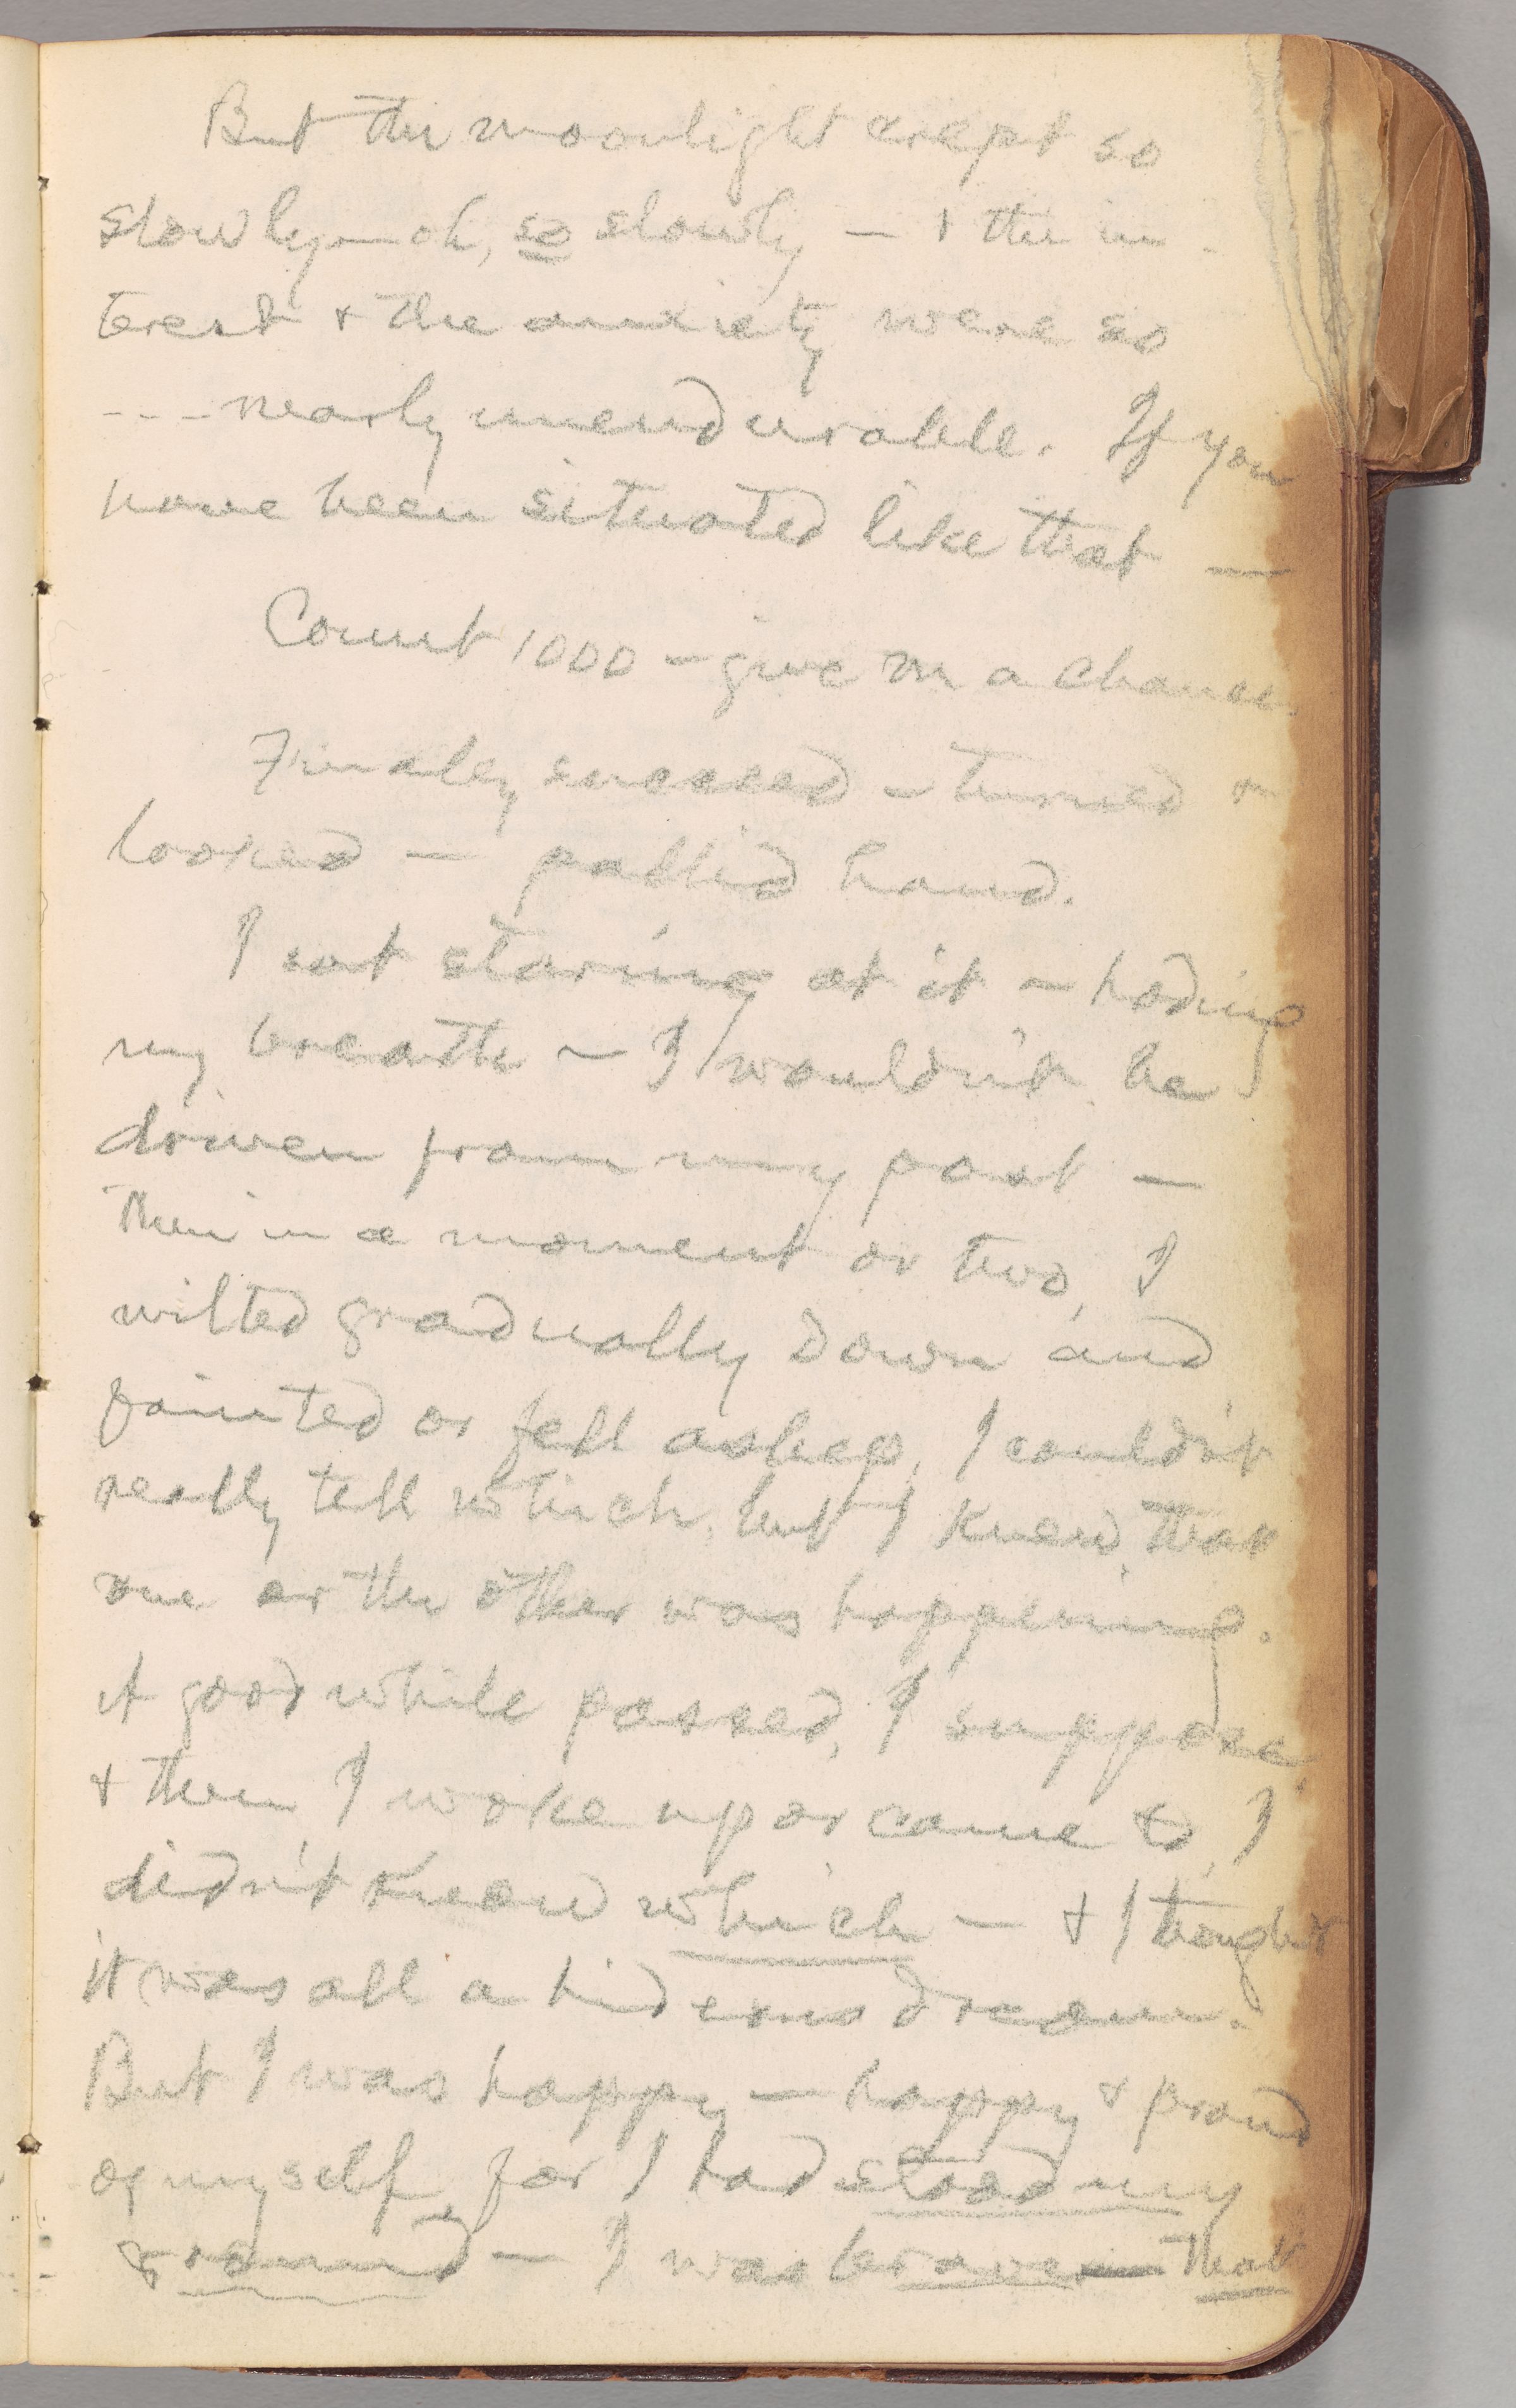 But the moonlight crept so
slowly—oh, so slowly — & the in-
terest & the anxiety were so
---nearly unendurable. If you
have been situated like that —
Count 1000 — give m a chance.
Finally succeed — turned &
looked — pallid hand.
I sat staring at it — hoding
my breath — I wouldn't be
driven from my post —
Then in a moment or two, I
wilted gradually down and
fainted or fell asleep, I couldn't
really tell which, but I knew that
one or the other was happening.
A good while passed, I suppose,
& then I woke up or came to, I
didn't know which — & I thought
it was all a hideous dream.
But I was happy — happy & proud
of myself, for I had stood my
ground — I was brave — that